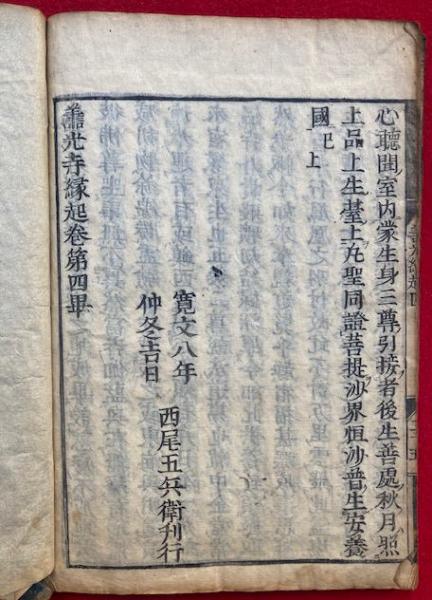 心聽聞室内蒙生身三尊引接者後生善處秋月照
上品上生臺上凡聖同證菩提沙界恒沙普生安養
國已上
善光寺縁起卷第四畢
寛文八年
仲冬吉日
西尾五兵衛刊行